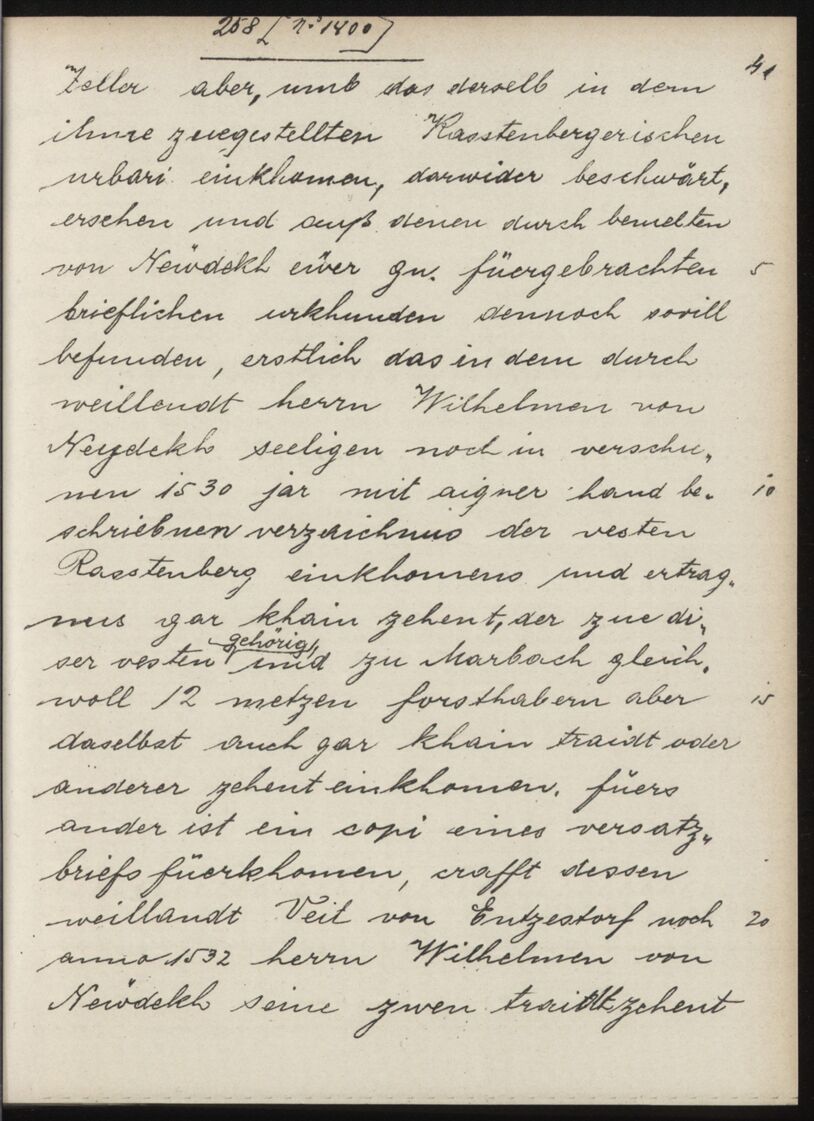 258 [n:o 1400]
4.
Zeller aber, umb das derselb in dem
ihme zuegestellten Rasstenbergerischen
urbari einkhomen, darwider beschwärt,
ersehen und auß denen durch bemelten
von Neüdekh eüer gn. füergebrachten 5
brieflichen urkhunden dennoch sovill
befunden, erstlich das in dem durch
weillendt herrn Wilhelmen von
Neydekh seeligen noch in verschi„
nen 1530 jar mit aigner hand be„ 10
schriebnen verzaichnus der vesten
Rasstenberg einkhomens und ertrag„
nus gar khain zehent, der zue di„
ser vesten gehörig, und zu Marbach gleich„
woll 12 metzen forsthabern aber 15
daselbst auch gar khain traidt oder
anderer zehent einkhomen. füers
ander ist ein copi eines versatz„
briefs füerkhomen, crafft dessen
weillandt Veit von Entzestorf noch 20
anno 1532 herrn Wilhelmen von
Neüdekh seine zwen traidtzehent